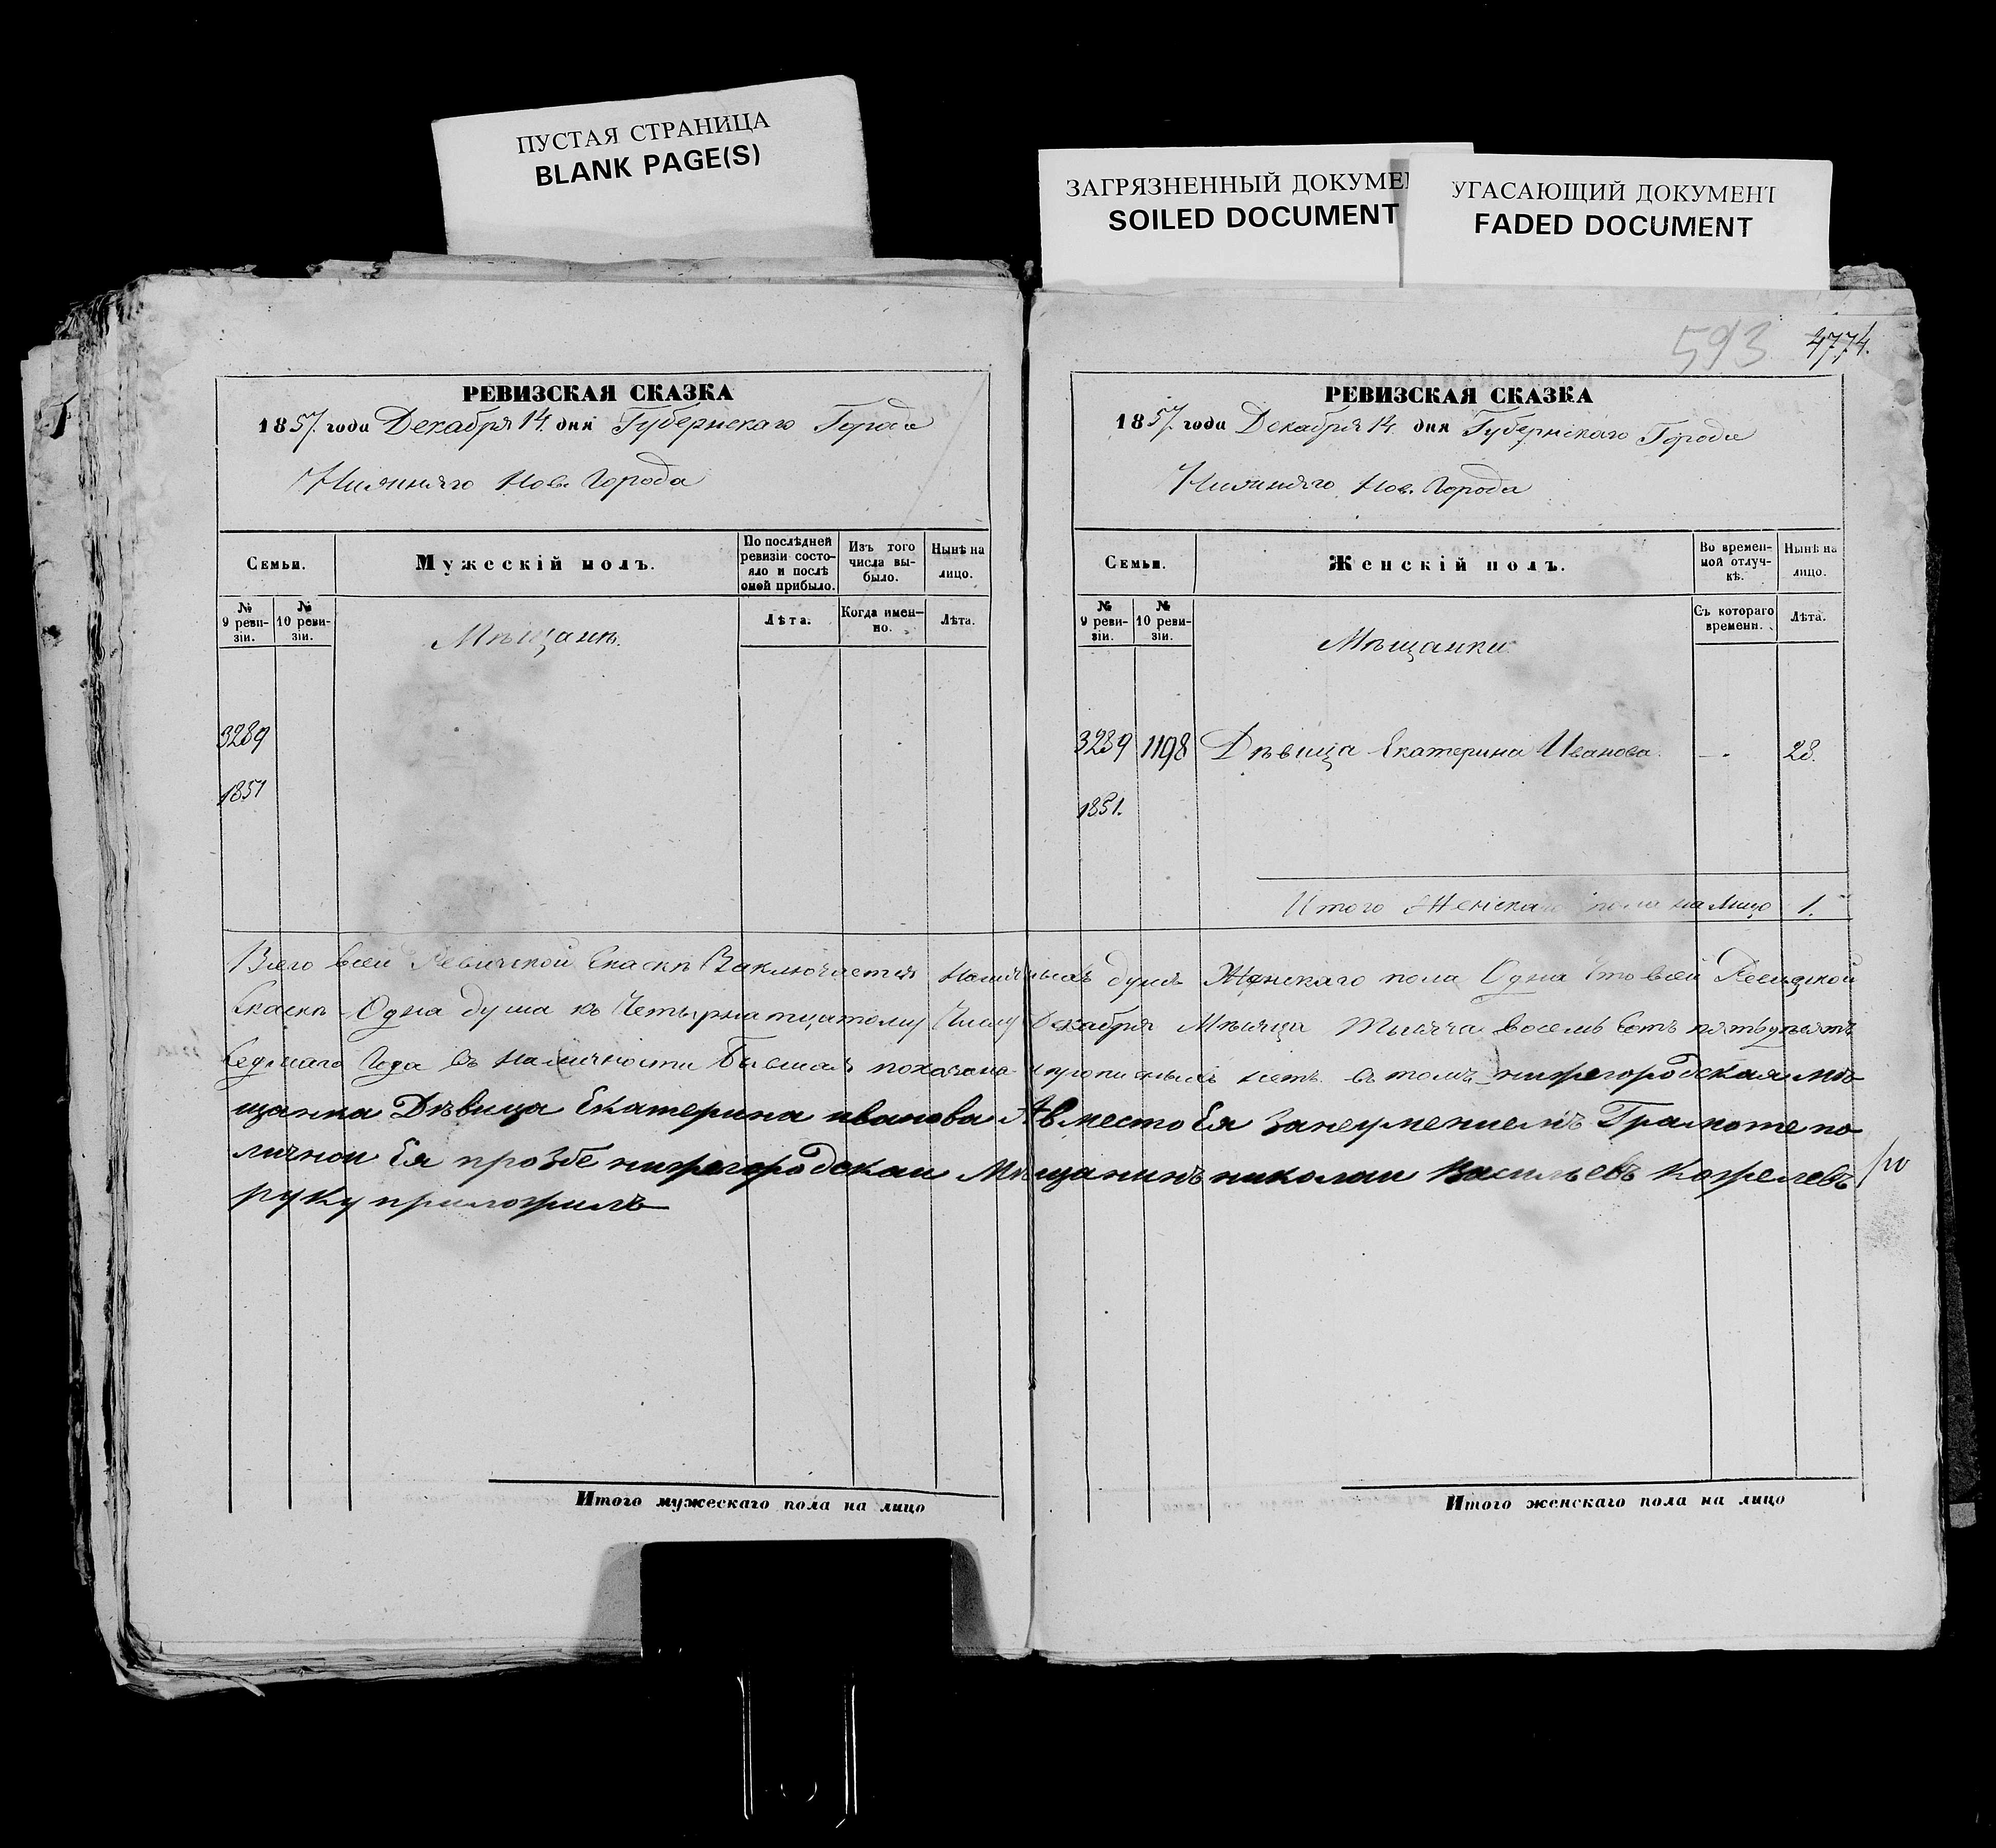 ПУСТАЯ СТРАНИЦА
BLANK PAGE(S)
ЗАГРЯЗНЕННЫЙ ДОКУМЕ
SOILED DOCUMENT
УГАСАЮЩИЙ ДОКУМЕНТ
FADED DOCUMENT
593 4774.
РЕВИЗСКАЯ СКАЗКА
1857. года Декабря 14. дня Губернскаго Города
Нижняго Нов. Города
Семьи.
Мужескій полъ.
По послѣдней ревизіи состояло и послѣ оной прибыло.
Изъ того числа выбыло.
Нынѣ на лицо.
№ 9 ревизіи.
№ 10 ревизіи.
Мѣщанѣ.
Лѣта.
Когда именно.
Лѣта.
3289
1851
РЕВИЗСКАЯ СКАЗКА
1857. года Декабря 14. дня Губернскаго Города
Нижняго Нов. Города
Семьи.
Женскій полъ.
Во временной отлучкѣ.
Нынѣ на лицо.
№ 9 ревизіи.
№ 10 ревизіи.
Мѣщанки
Съ котораго времени.
Лѣта.
3289 1198 Дѣвица Екатерина Иванова. — 28.
1851.
Итого Женскаго пола на лицо 1.
Всего всей Ревизской Скаскѣ Заключается душъ Женскаго пола Одна Что всей Ревизской
Скаскѣ Одна душа къ Четырнатцатому Числу Декабря Мѣсяца Тысяча восемь Сотъ пятьдесятъ
Седмаго Года въ наличности показана прописныхъ нетъ. въ томъ нижегородская мѣ
щанка Дѣвица Екатерина иванова А вместо Ея Занеумениемъ Грамоте по
личнои Ея прозбе нижегородскаи Мѣщанинъ николаи Васильевъ Кожелевъ
руку приложилъ
Итого мужескаго пола на лицо
Итого женскаго пола на лицо